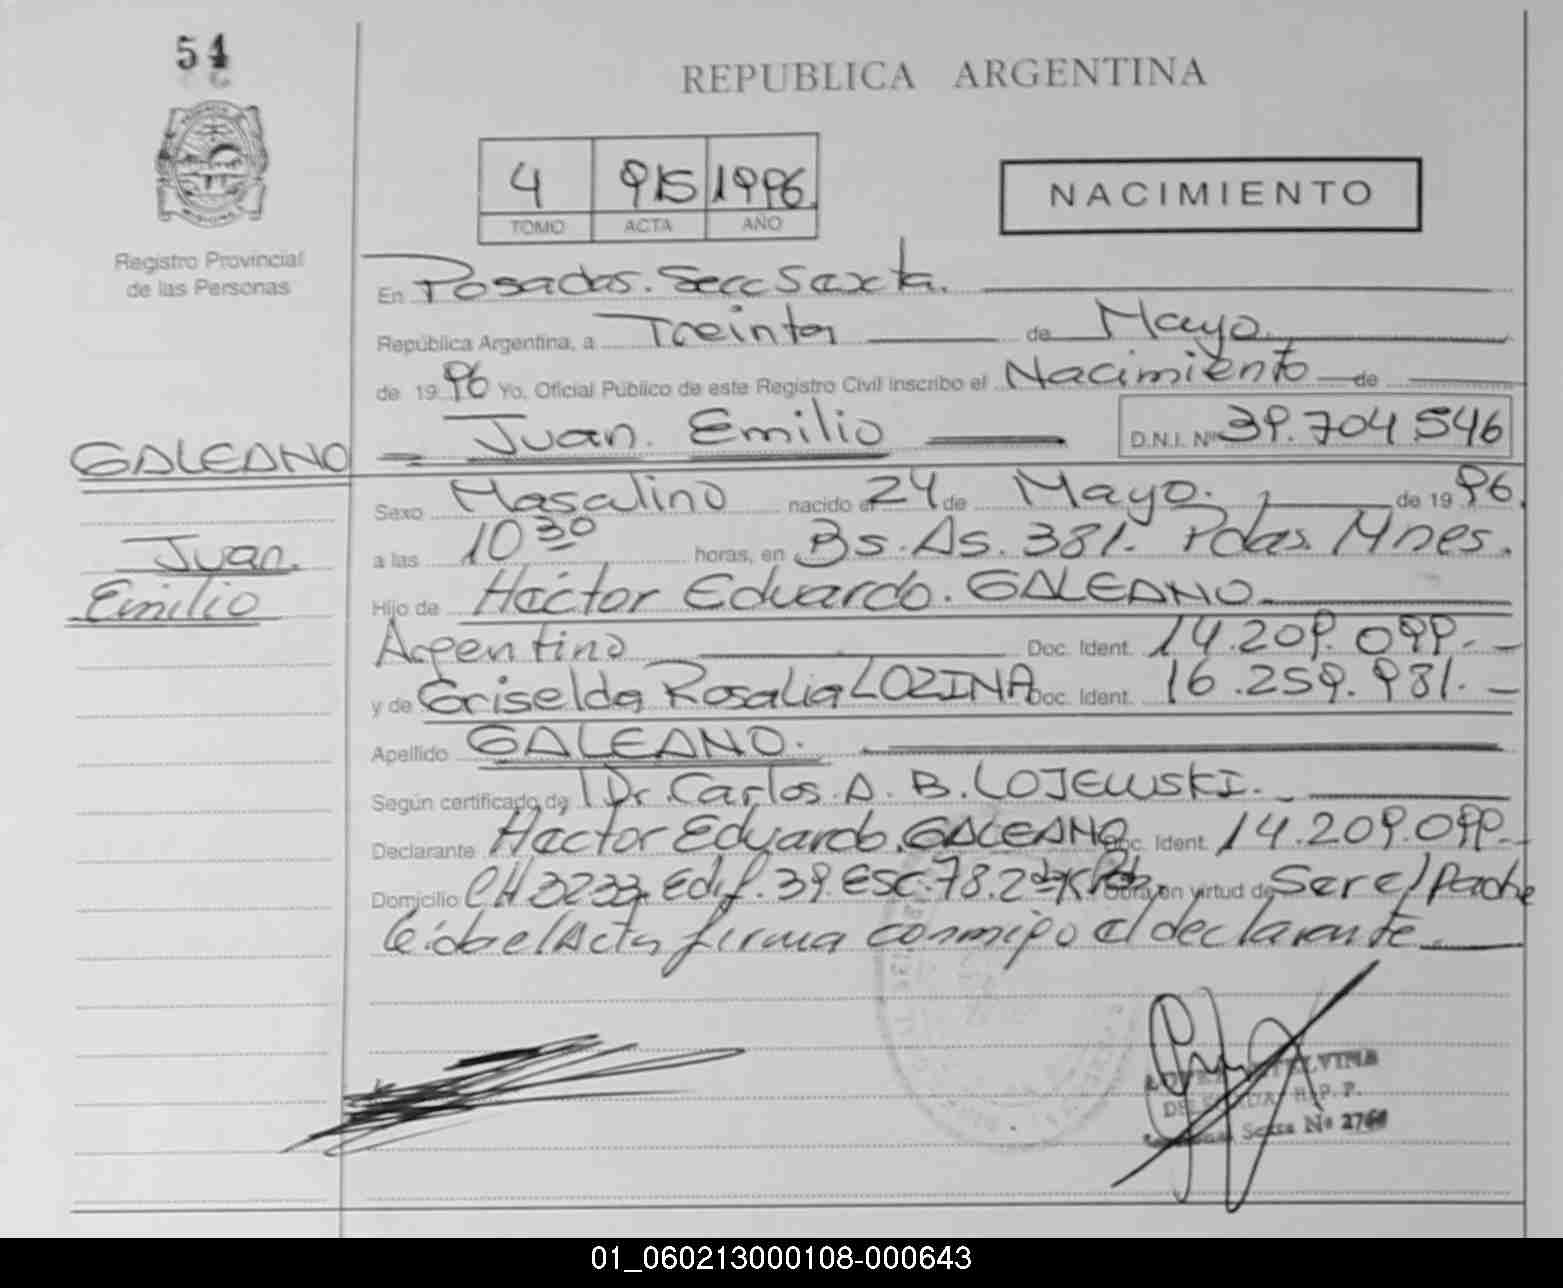 54
REPUBLICA ARGENTINA
4 915 1996
TOMO ACTA AÑO
NACIMIENTO
Registro Provincial
de las Personas
En Posadas. Secc Sexta.
República Argentina, a Treinta de Mayo.
de 1996 Yo, Oficial Público de este Registro Civil inscribo el Nacimiento de
Juan. Emilio D.N.I. Nº 39.704 546
GALEANO
Juan.
Emilio
Sexo Masculino nacido el 24 de Mayo. de 1996.
a las 10 30 horas, en Bs. As. 381. Pdas. Mnes.
Hijo de Héctor Eduardo. GALEANO
Argentino Doc. Ident. 14.209.099.-
y de Griselda Rosalia LOZINA Doc. Ident. 16.259.981.-
Apellido GALEANO.
Según certificado de Dr. Carlos. A. B. LOJEWSKI.
Declarante Héctor Eduardo. GALEANO Doc. Ident. 14.209.099.-
Domicilio CH 3233. Edif. 39. Esc. 78. Obra en virtud de Ser el padre
Leida el Acta firma conmigo el declarante.
Nº 2760
01_060213000108-000643